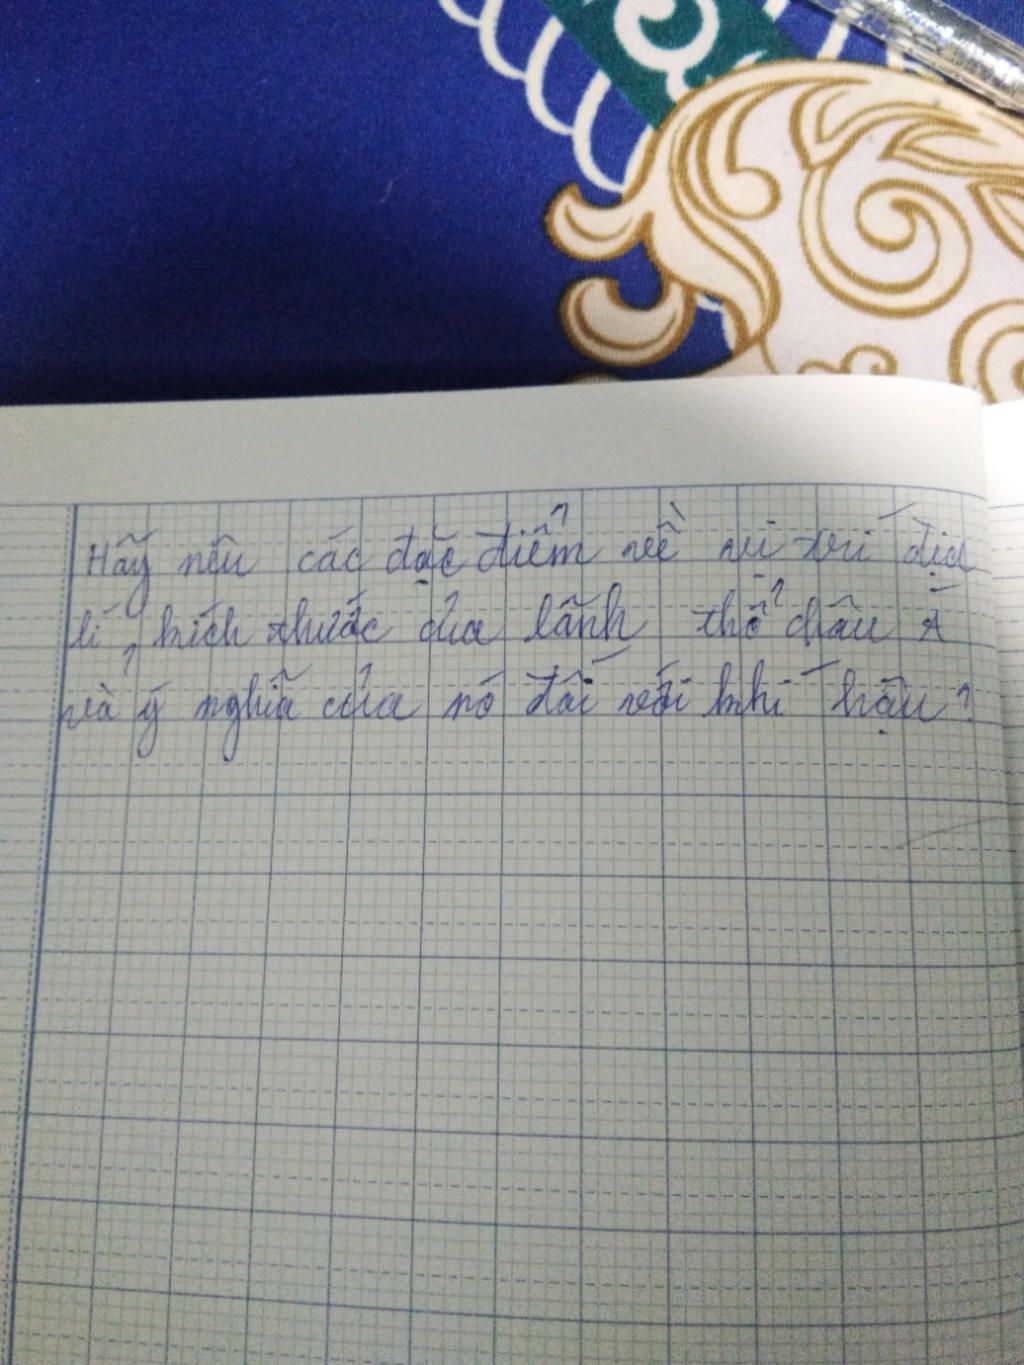 Hãy nêu các đặc điểm về vị trí địa
lí, kích thước của lãnh thổ châu Á
và ý nghĩa của nó đối với khí hậu?